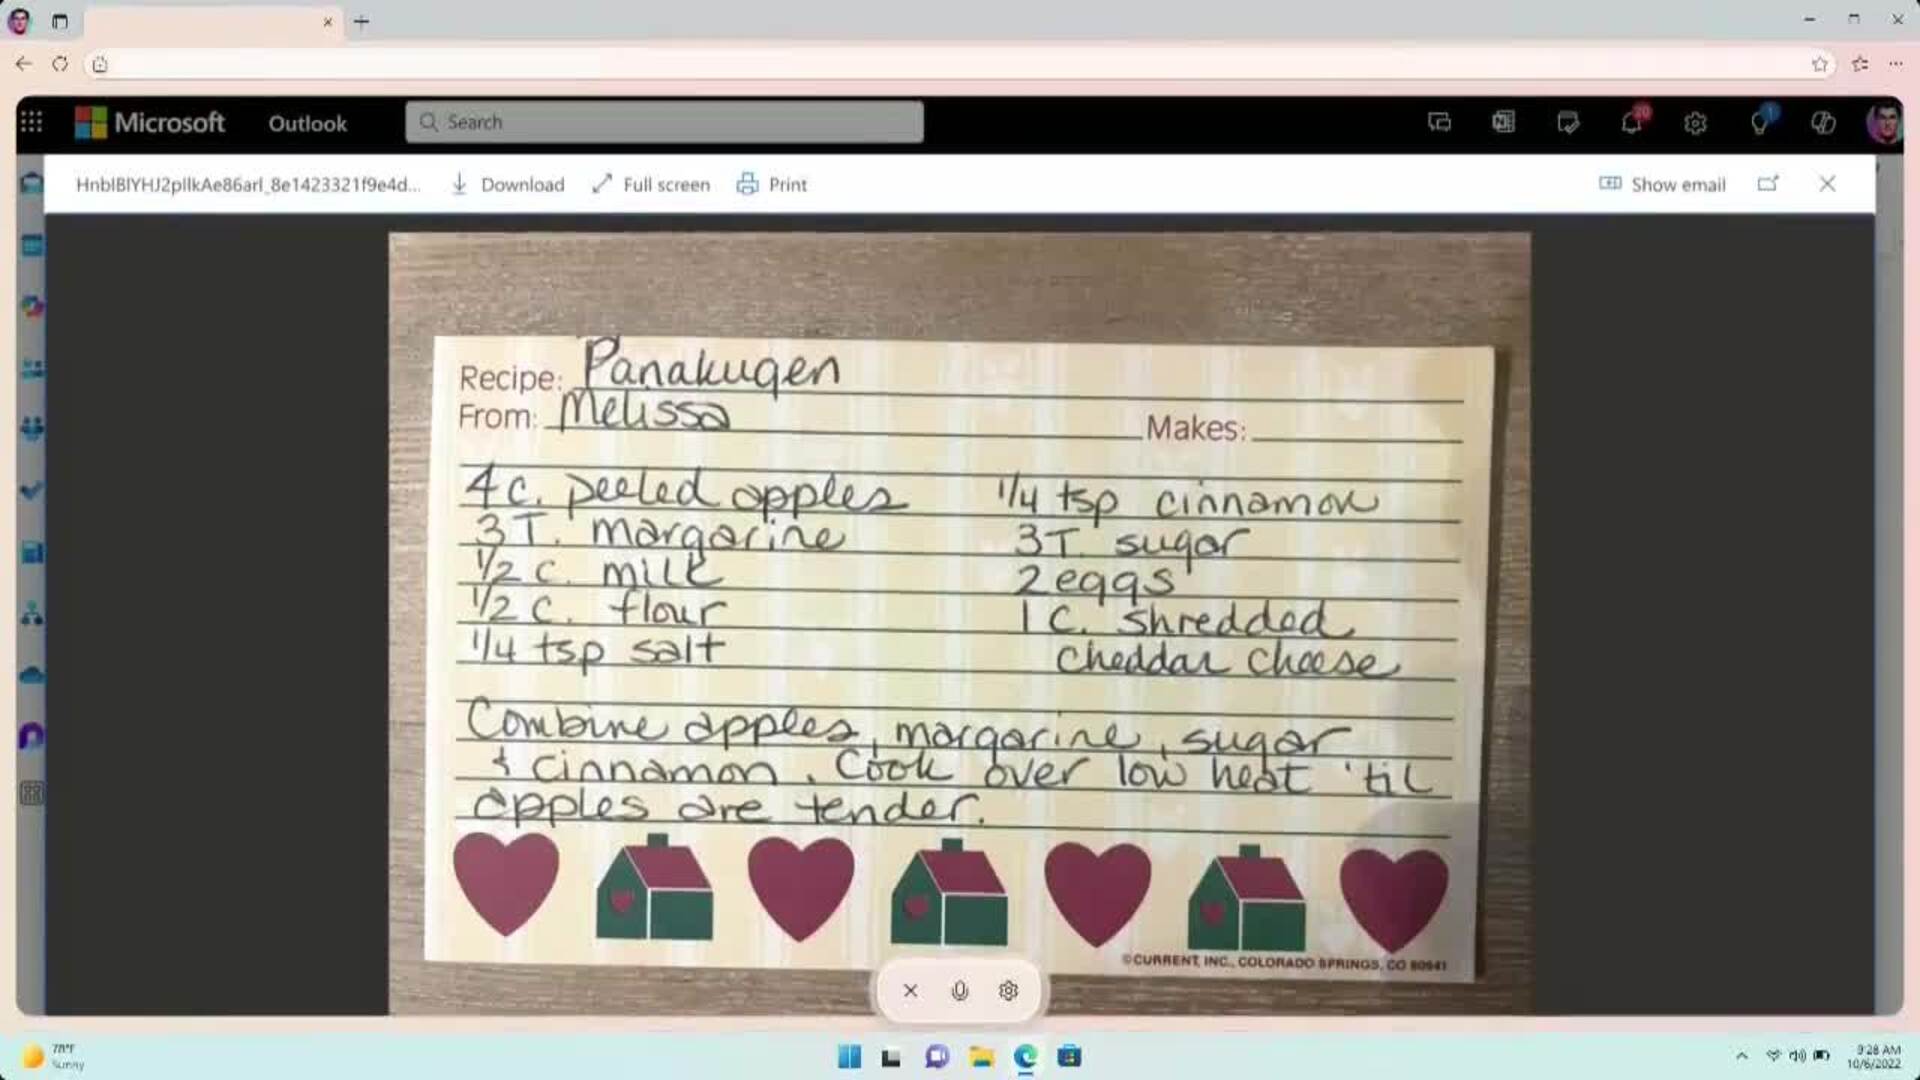 Microsoft Outlook Search 20 1
HnblBlYHJ2pllkAe86arl_8e1423321f9e4d... Download Full screen Print Show email
Recipe: Panakugen
From: Melissa Makes:
4 c. peeled apples 1/4 tsp cinnamon
3 T. margarine 3 T. sugar
1/2 c. milk 2 eggs
1/2 c. flour 1 c. shredded
1/4 tsp salt cheddar cheese
Combine apples, margarine, sugar
& cinnamon. Cook over low heat 'til
apples are tender.
©CURRENT, INC., COLORADO SPRINGS, CO 80941
78°F
Sunny
9:28 AM
10/6/2022